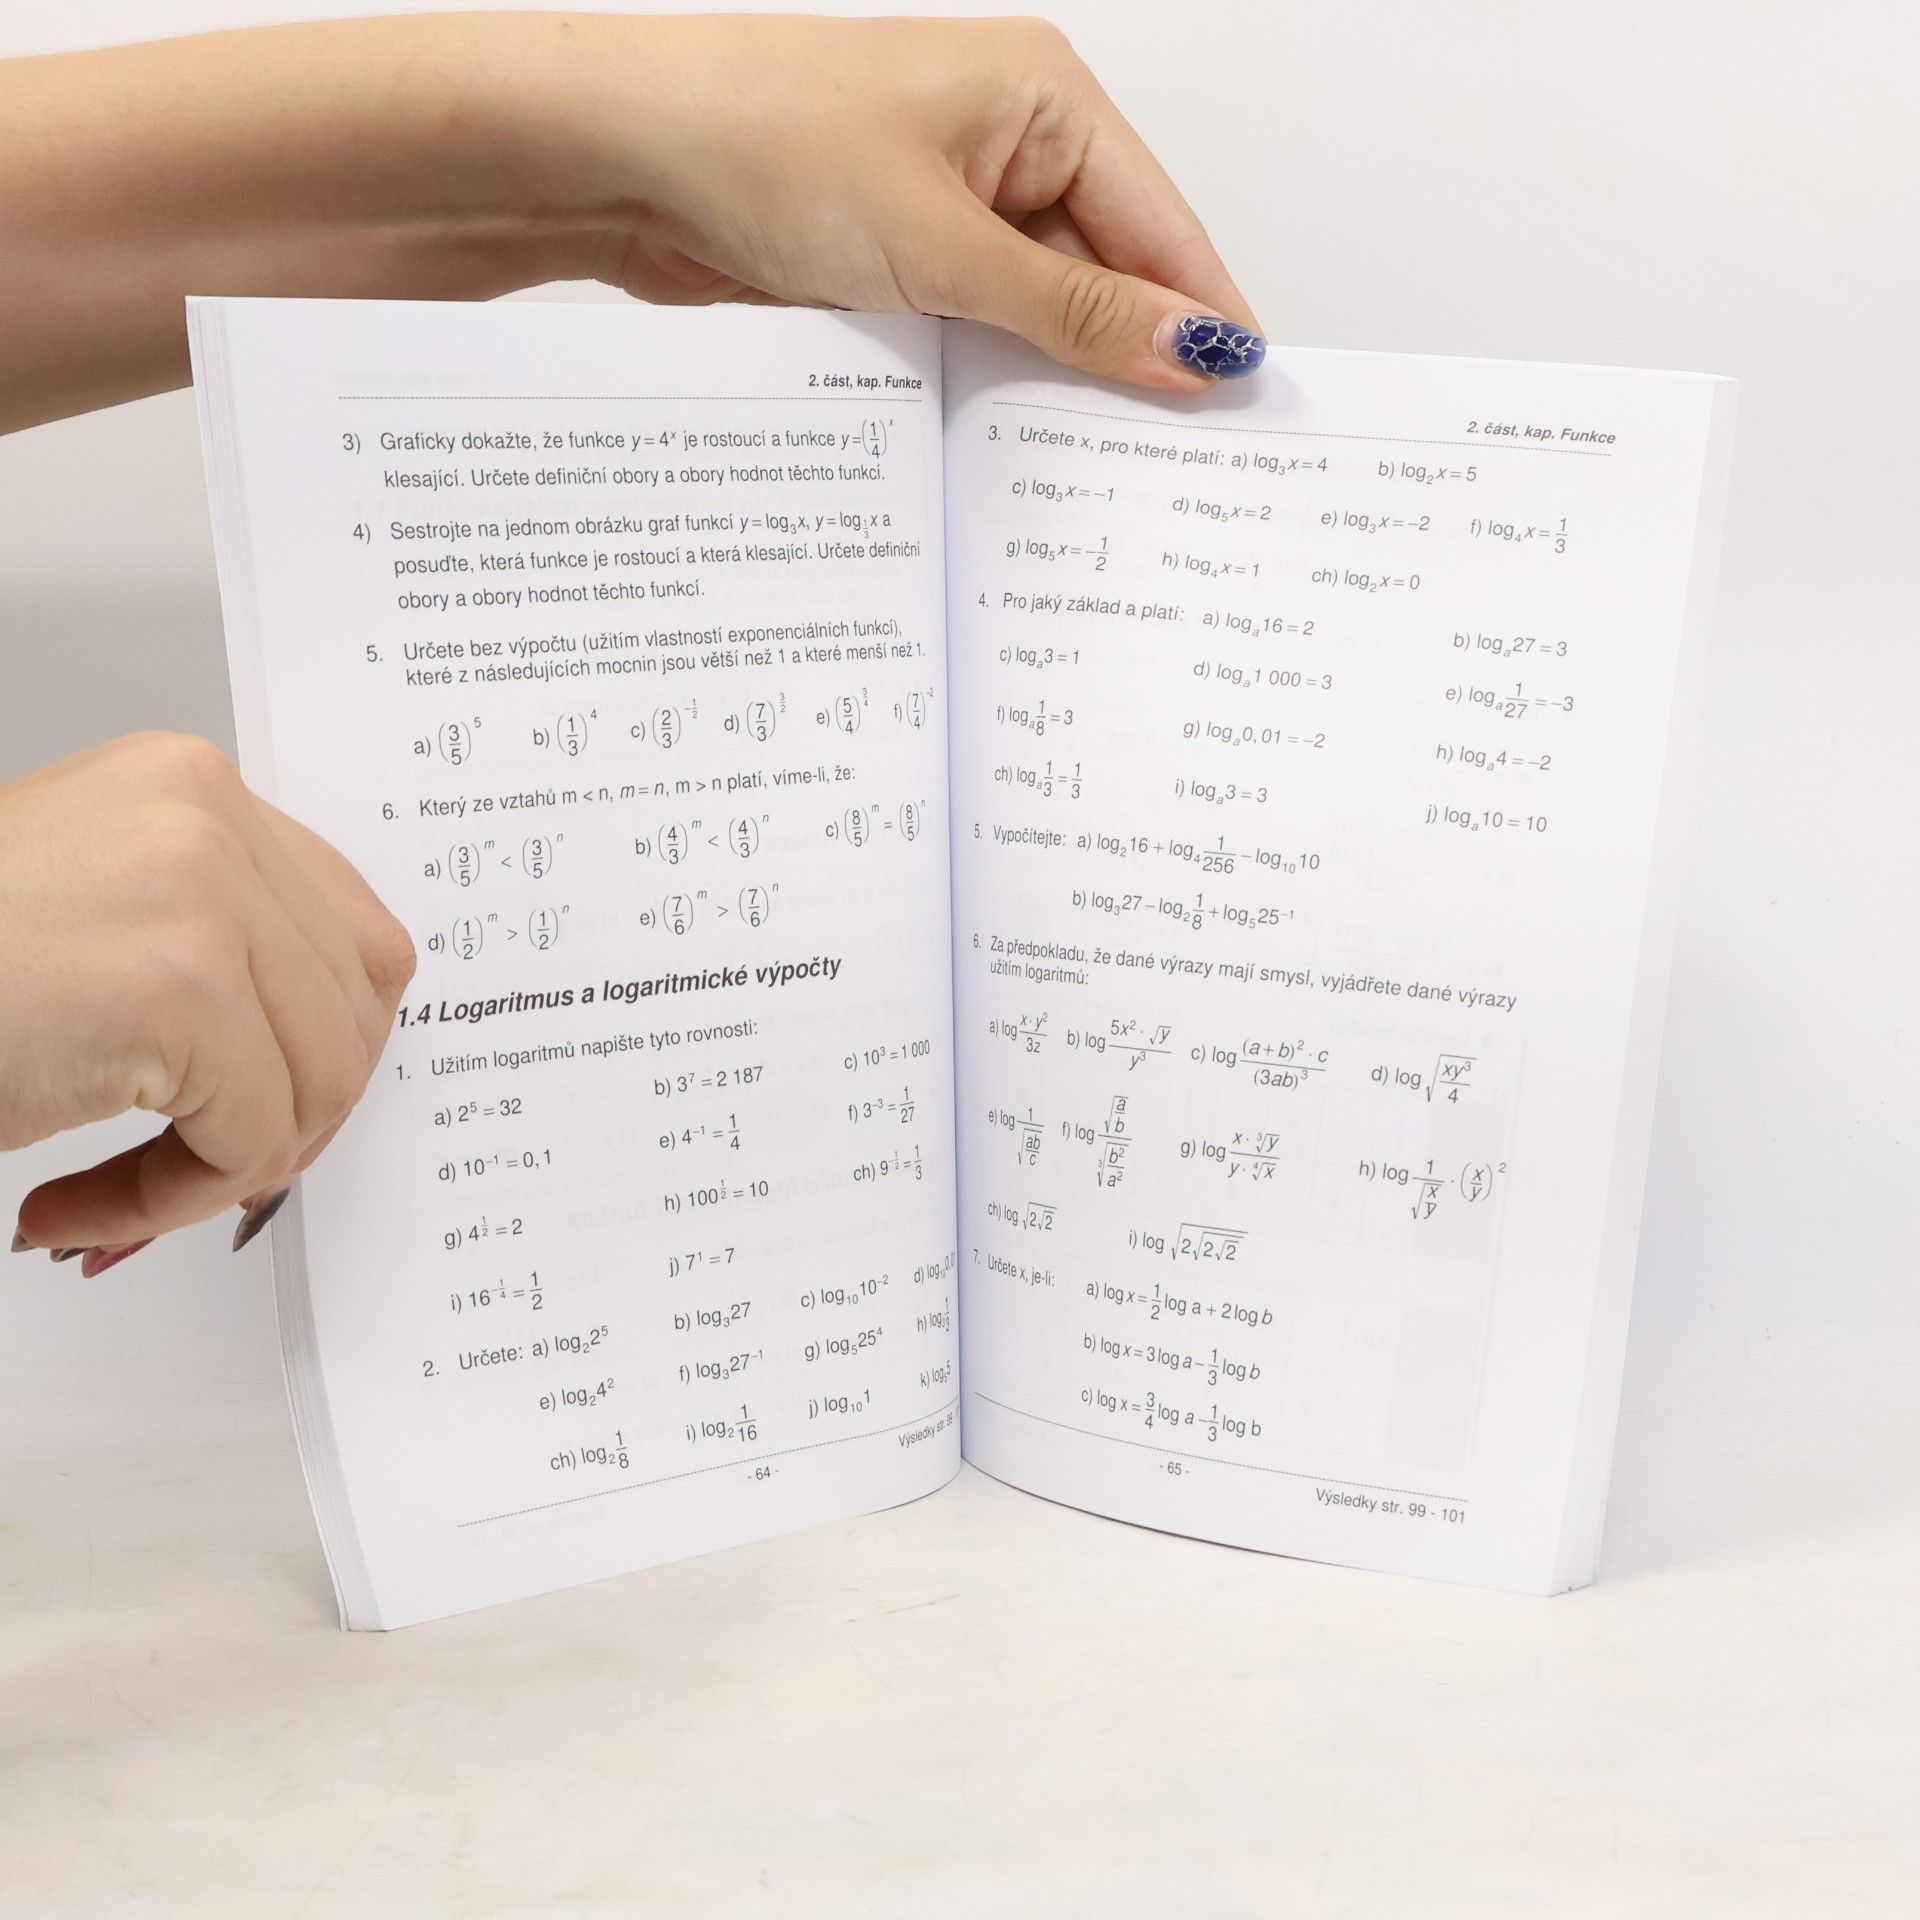 2. část, kap. Funkce
3) Graficky dokažte, že funkce y = 4ˣ je rostoucí a funkce y = (1/4)ˣ
klesající. Určete definiční obory a obory hodnot těchto funkcí.
4) Sestrojte na jednom obrázku graf funkcí y = log₃x, y = log_(1/3) x a
posuďte, která funkce je rostoucí a která klesající. Určete definiční
obory a obory hodnot těchto funkcí.
5. Určete bez výpočtu (užitím vlastností exponenciálních funkcí),
které z následujících mocnin jsou větší než 1 a které menší než 1.
a) (3/5)^5 b) (1/3)^4 c) (2/3)^(-1/2) d) (7/3)^(3/2) e) (5/4)^(3/4) f) (7/4)^(-2)
6. Který ze vztahů m < n, m = n, m > n platí, víme-li, že:
a) (3/5)^m < (3/5)^n b) (4/3)^m < (4/3)^n c) (8/5)^m = (8/5)^n
d) (1/2)^m > (1/2)^n e) (7/6)^m > (7/6)^n
1.4 Logaritmus a logaritmické výpočty
1. Užitím logaritmů napište tyto rovnosti:
a) 2⁵ = 32 b) 3⁷ = 2 187 c) 10³ = 1 000
d) 10⁻¹ = 0, 1 e) 4⁻¹ = 1/4 f) 3⁻³ = 1/27
g) 4^(1/2) = 2 h) 100^(1/2) = 10 ch) 9^(-1/2) = 1/3
i) 16^(-1/4) = 1/2 j) 7¹ = 7
2. Určete: a) log₂2⁵ b) log₃27 c) log₁₀10⁻² d) log₁₀0,01
e) log₂4² f) log₃27⁻¹ g) log₅25⁴ h) log₃1/3
ch) log₂1/8 i) log₂1/16 j) log₁₀1 k) log₅5
Výsledky str.
- 64 -
2. část, kap. Funkce
3. Určete x, pro které platí: a) log₃x = 4 b) log₂x = 5
c) log₃x = −1 d) log₅x = 2 e) log₃x = −2 f) log₄x = 1/3
g) log₅x = −1/2 h) log₄x = 1 ch) log₂x = 0
4. Pro jaký základ a platí: a) logₐ16 = 2 b) logₐ27 = 3
c) logₐ3 = 1 d) logₐ1 000 = 3 e) logₐ1/27 = −3
f) logₐ1/8 = 3 g) logₐ0, 01 = −2 h) logₐ4 = −2
ch) logₐ1/3 = 1/3 i) logₐ3 = 3 j) logₐ10 = 10
5. Vypočítejte: a) log₂16 + log₄1/256 − log₁₀10
b) log₃27 − log₂1/8 + log₅25⁻¹
6. Za předpokladu, že dané výrazy mají smysl, vyjádřete dané výrazy
užitím logaritmů:
a) log (x · y²)/(3z) b) log (5x² · √y)/(y³) c) log ((a + b)² · c)/((3ab)³) d) log √(xy³/4)
e) log 1/√(ab/c) f) log √(a/b)/∛(b²/a²) g) log (x · ∛y)/(y · ∜x) h) log 1/√(x/y) · (x/y)²
ch) log √(2√2) i) log √(2√(2√2))
7. Určete x, je-li: a) log x = 1/2 log a + 2 log b
b) log x = 3 log a − 1/3 log b
c) log x = 3/4 log a − 1/3 log b
- 65 -
Výsledky str. 99 - 101